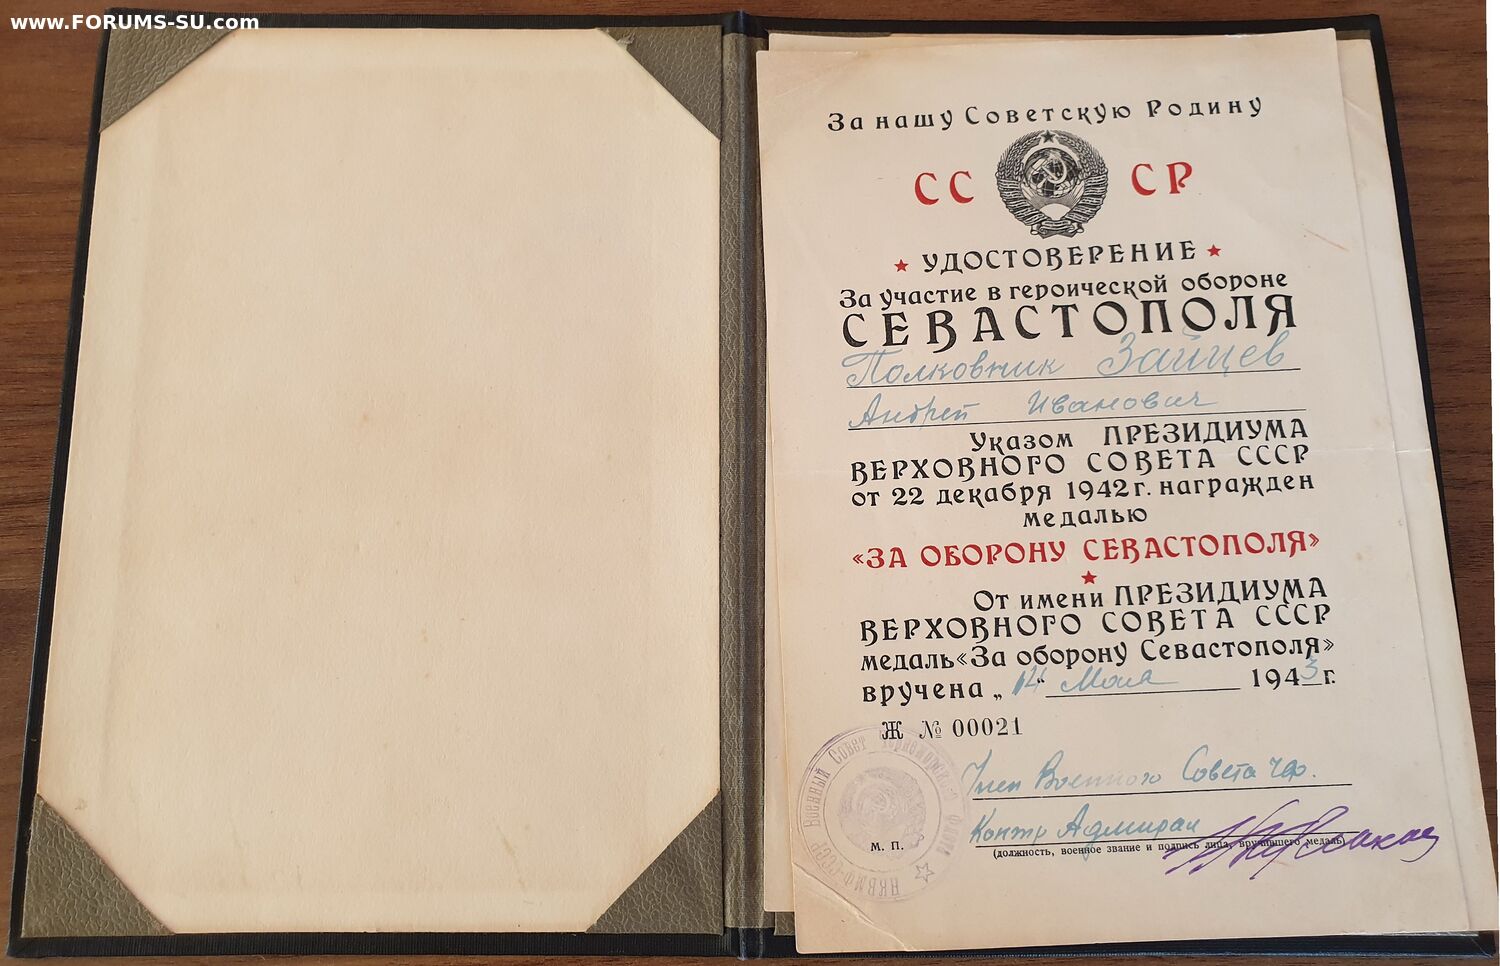 www.FORUMS-SU.com
За нашу Советскую Родину
СС СР
УДОСТОВЕРЕНИЕ
За участие в героической обороне
СЕВАСТОПОЛЯ
Полковник Зайцев
Андрей Иванович
Указом ПРЕЗИДИУМА
ВЕРХОВНОГО СОВЕТА СССР
от 22 декабря 1942 г. награжден
медалью
«ЗА ОБОРОНУ СЕВАСТОПОЛЯ»
От имени ПРЕЗИДИУМА
ВЕРХОВНОГО СОВЕТА СССР
медаль «За оборону Севастополя»
вручена „14" Мая 1943 г.
Ж № 00021
Член Военного Совета ЧФ.
Контр Адмирал
(должность, военное звание и подпись лица, вручившего медаль)
М. П.
Военный Совет Черноморского флота
НКВМФ-СССР